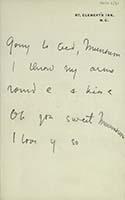 ST. CLEMENT'S INN,
W.C.
Going to bed, Mummum
I throw my arms
round e s kiss
Oh you sweet Mummum
I love y so